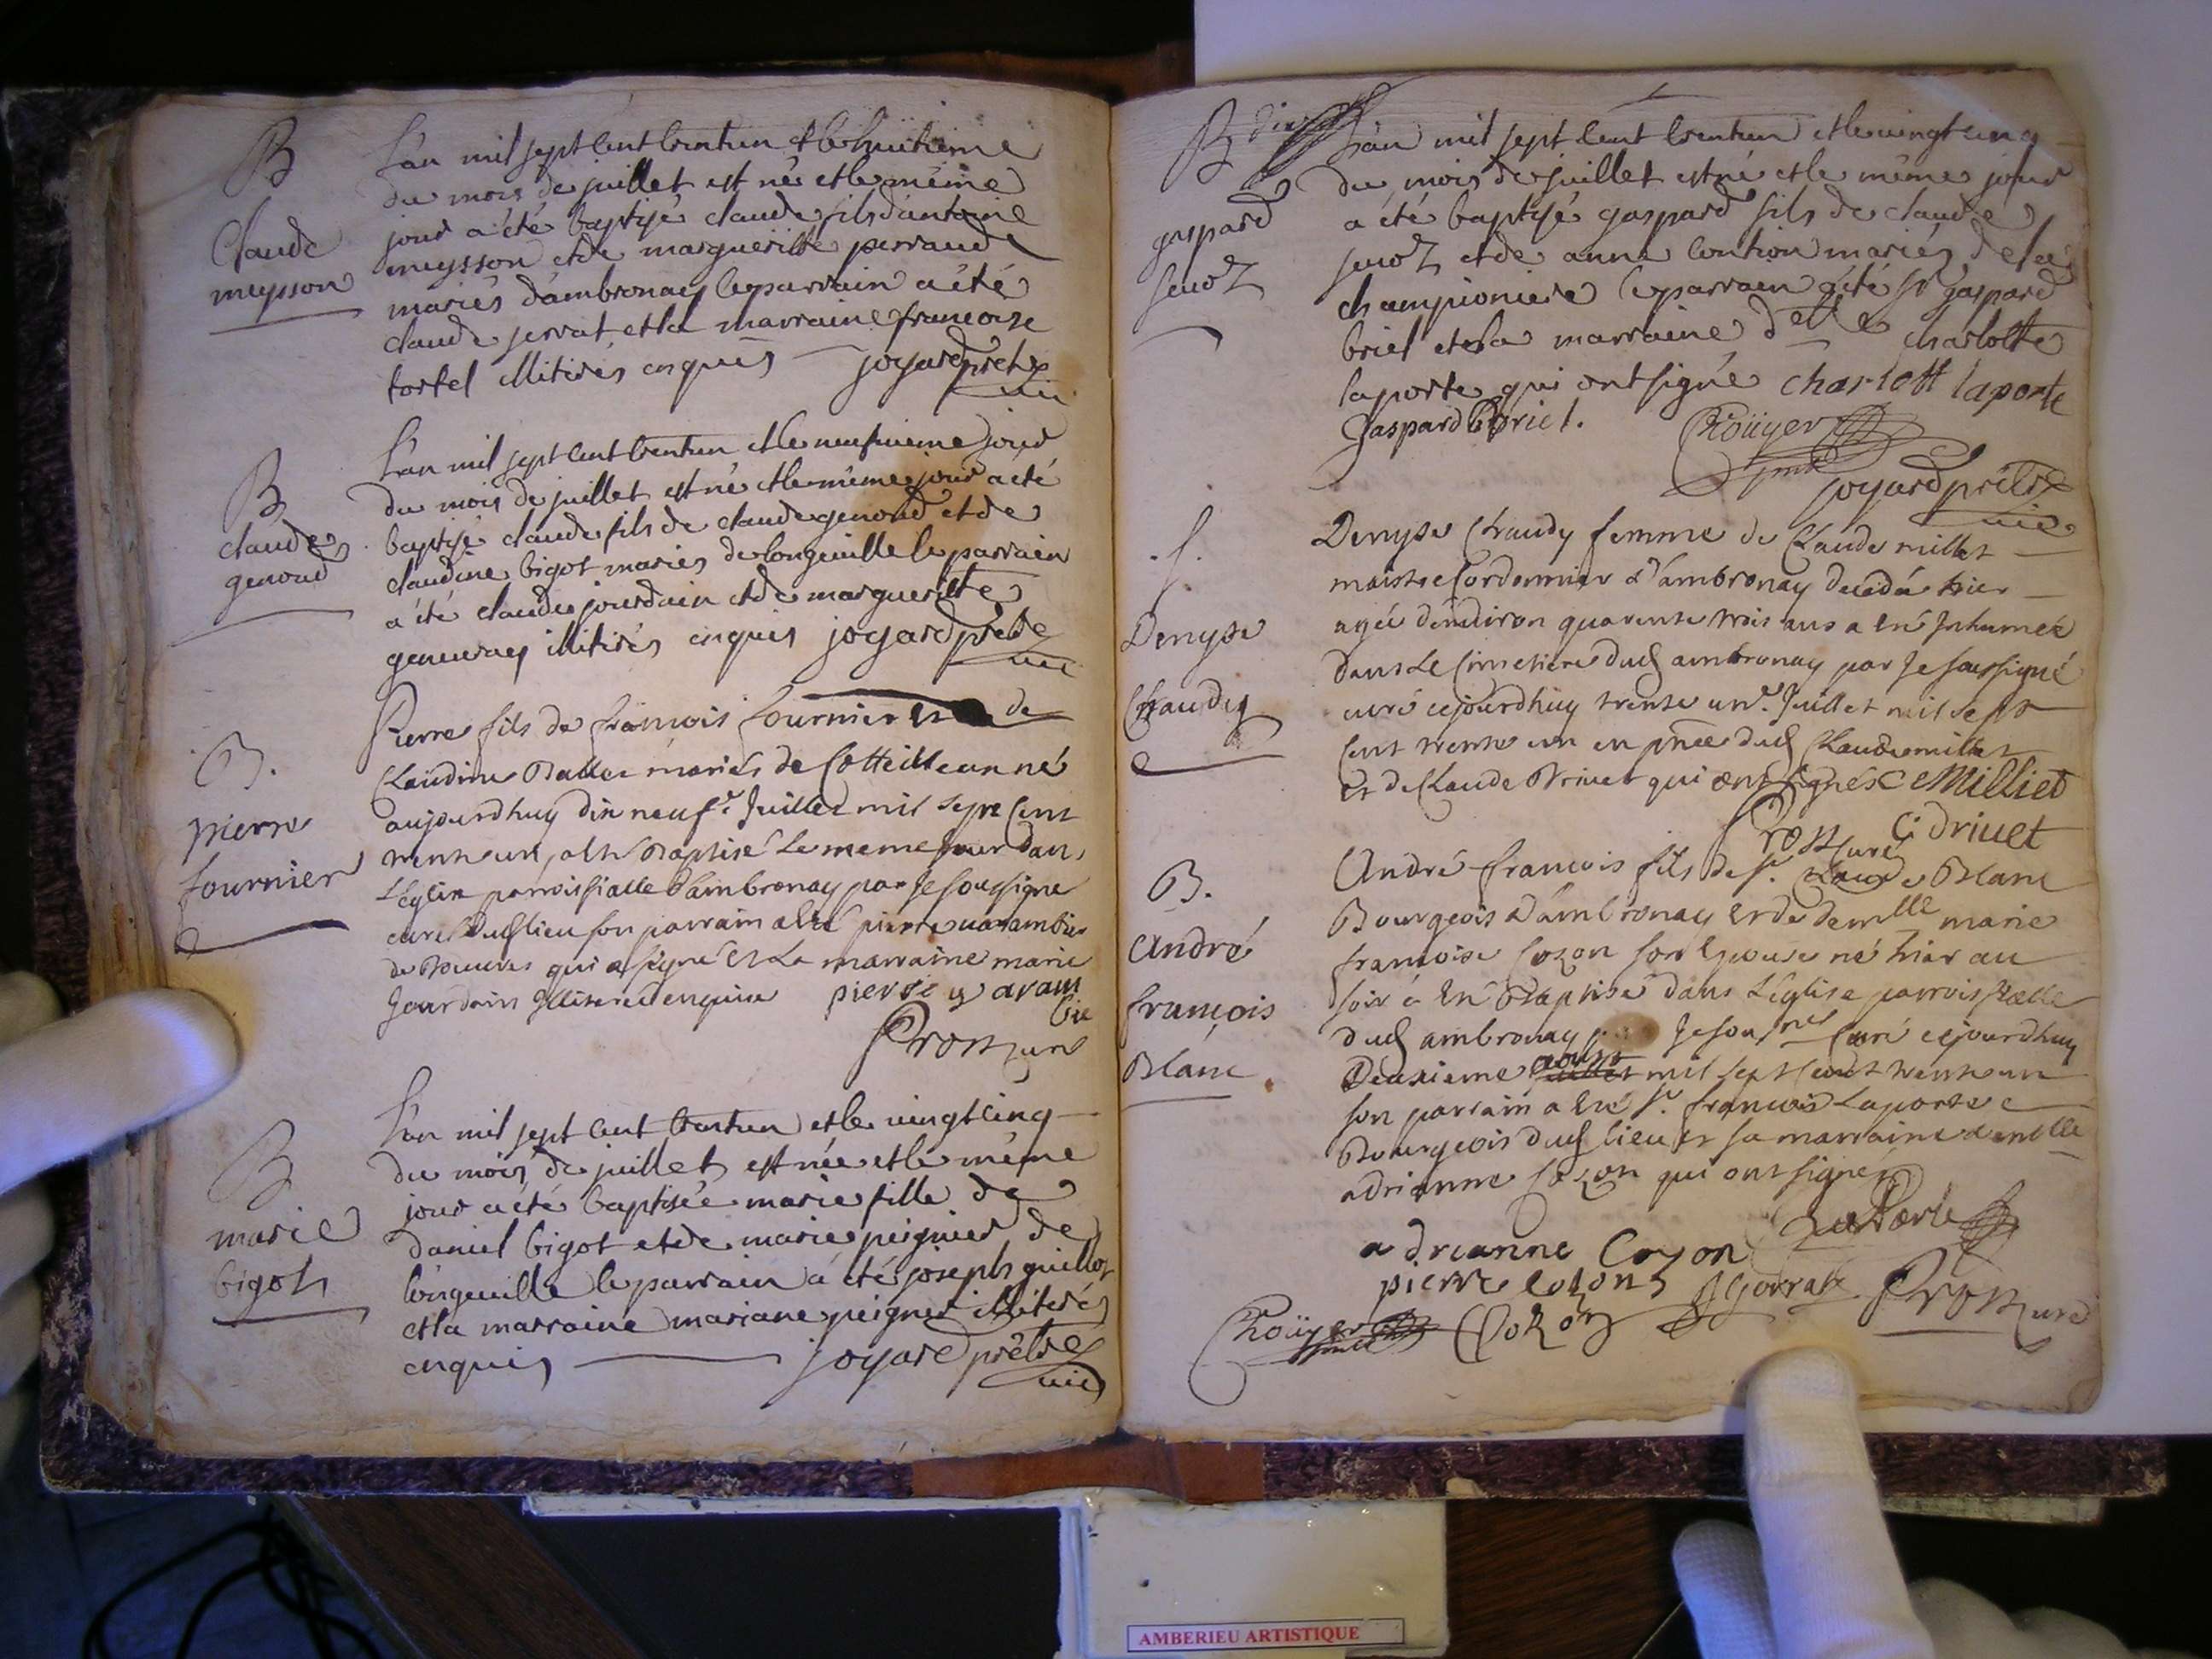 B
Claude
meysson
L'an mil sept cent trentun et le huitieme
du mois de juillet est né et le même
jour a été baptisé claude fils d'antoine
meysson et de margueritte perraud
mariés d'ambronay le parrain a été
claude servat et la marraine francoise
tortel illitirés enquis joyard prêtre
vic
B
claude
genoud
L'an mil sept cent trentun et le neufvieme jour
du mois de juillet est né et le même jour a été
baptisé claude fils de claude genoud et de
claudine bigot mariés de longeville le parrain
a été claude jourdain et de margueritte
illitirés enquis joyard prêtre
vic
B.
pierre
fournier
Pierre fils de francois fournier et de
Claudine mariés de Cotteillieu né
aujourdhuy dix neuf.e Juillet mil sept cent
trente un, a été Baptisé le meme jour dans
L'église parroissialle d'ambronay par Je soussigné
curé dud lieu son parrain a été pierre
de Douvres qui a signé et La marraine marie
Jourdain Illiteré enquise pierre
curé
B
marie
bigot
L'an mil sept cent trentun et le vingt cinq
du mois de juillet est née et le même
jour a été baptisée marie fille de
daniel bigot et de marie peignier de
longeville le parrain a été joseph guillot
et la marraine mariane peignier illitirés
enquis joyard prêtre
vic
B
gaspard
L'an mil sept cent trentun et le vingt cinq
du mois de juillet est né et le même jour
a été baptisé gaspard fils de claude
et de anne mariés de la
championiere le parrain a été sr gaspard
briel et la marraine delle charlotte
laporte qui ont signé charlott laporte
Gaspard Briel.
joyard prêtre
vic
f.
Denyse
Chaudy
Denyse Chaudy femme de Claude millet
maistre Cordonnier d'ambronay decedée hier
agée d'environ quarente trois ans a été Inhumée
dans Le Cimetiere dud ambronay par Je soussigné
curé cejourdhuy trente un.e Juillet mil sept
cent trente un en pnce dud Claude millet
et de Claude Drivet qui ont signés C Milliet
curé C: drivet
B.
André
françois
Blanc
André francois fils de sr. Claude Blanc
Bourgeois d'ambronay et de demlle marie
francoise Cozon son Epouse né hier au
soir a été Baptisé dans L'église parroissialle
dud ambronay par Je sousné Curé cejourdhuy
Deuxieme aoust mil sept cent trente un
son parrain a été sr. francois Laporte
Bourgeois dud lieu et sa marraine demlle
adrianne Cozon qui ont signés
adreanne Cozon LaPorte
pierre cozon
Cozon curé
AMBERIEU ARTISTIQUE